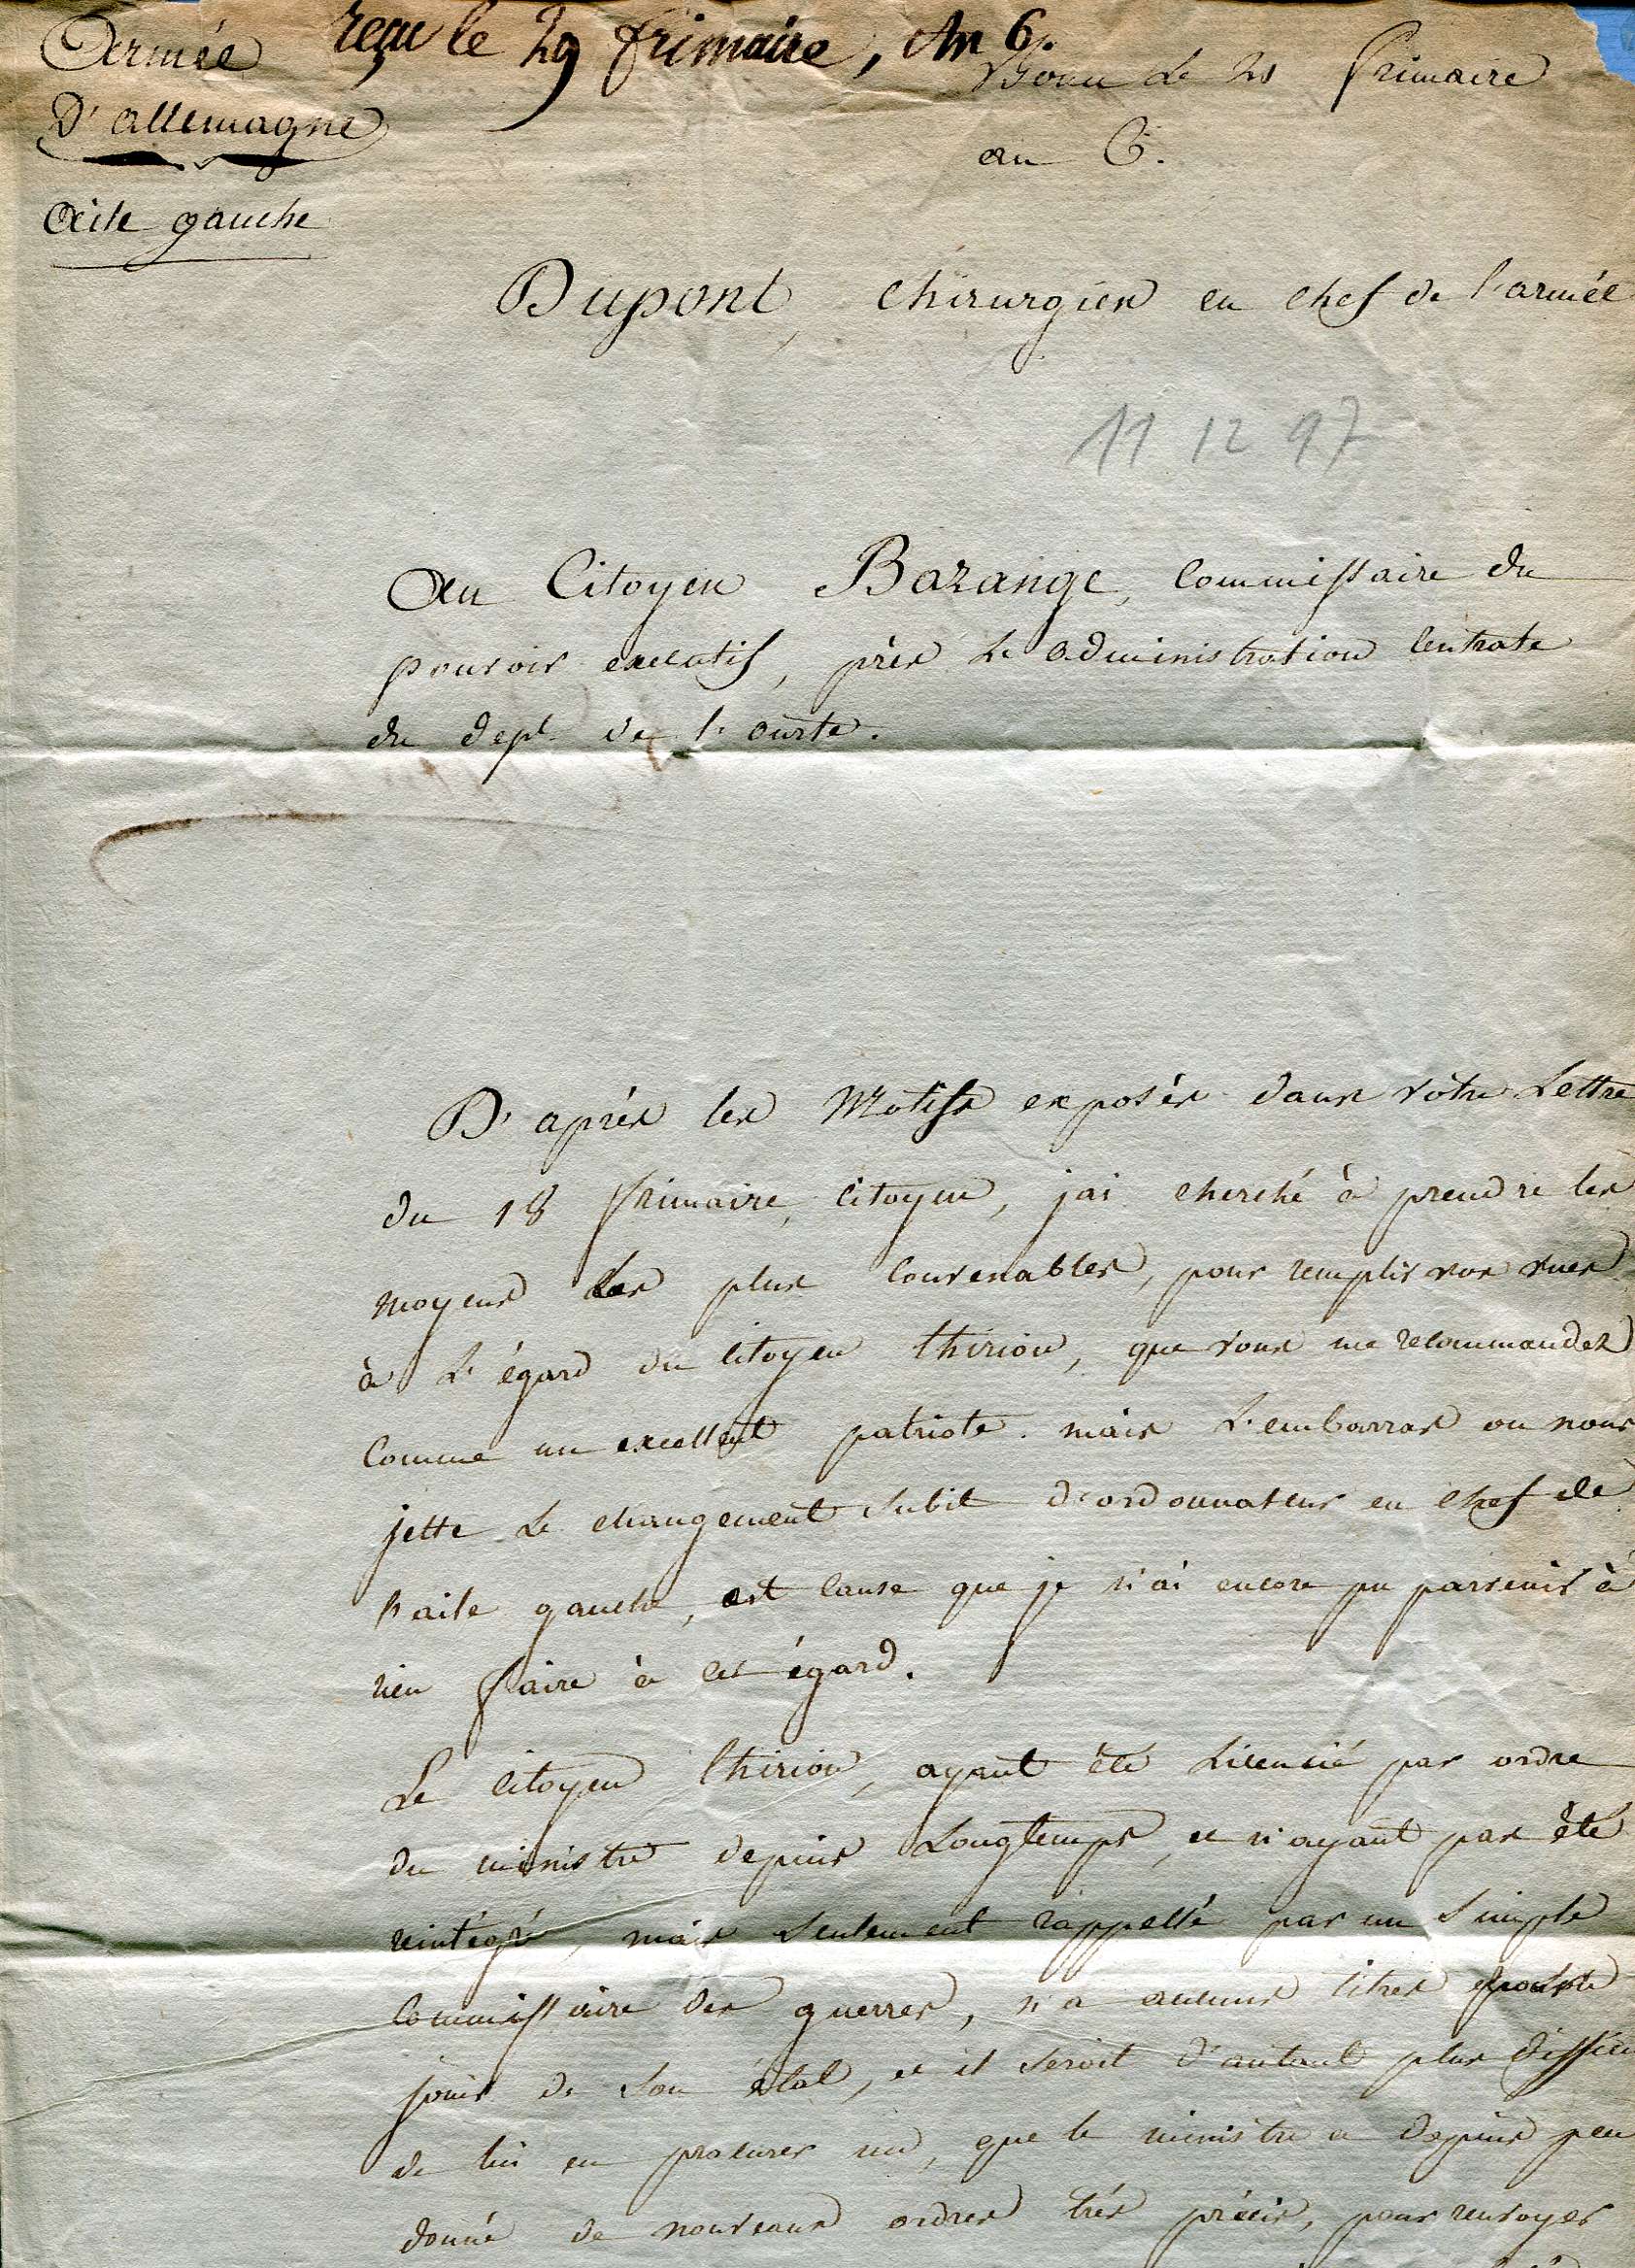 Armée
D'allemagne
Aile gauche
reçu le 29 frimaire, An 6.
Bonn le 21 frimaire
an 6.
Dupont, chirurgien en chef de l'armée
11 12 97
Au Citoyen Bazange, Commissaire du
pouvoir executif, près le administration Centrale
du dept. de l'ourte.
D'après les Motifs exposés dans vôtre Lettre
du 18 frimaire, Citoyen, jai cherché à prendre les
moyens Les plus Convenables, pour remplir vos vues
à L'égard du Citoyen thirion, que vous me recommandez
Comme un excellent patriote. mais L'embarras ou nous
jette Le changement Subit d'ordonnateur en chef de
l'aile gauche, est Cause que je n'ai encore pu parvenir à
rien faire à cet égard.
Le Citoyen thirion, ayant été Licencié par ordre
du ministre depuis Longtemps, et n'ayant pas été
reintégré, mais Seulement rappellé par un Simple
Commissaire des guerres, n'a aucuns titres pour
jouir de Son état, et il Seroit d'autant plus diffici
de lui en procurer un, que le ministre a depuis peu
donné de nouveaux ordres très précis, pour renvoyer